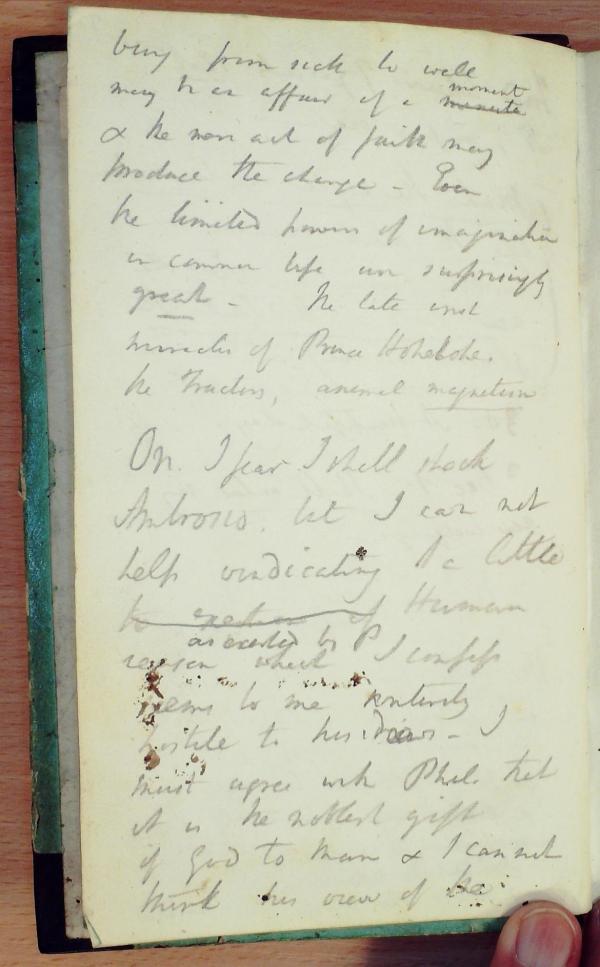 being from sick to well
may be an affair of a minute moment
& the mere act of faith may
produce the change - Even
the limited powers of imagination
in common life are surprisingly
great - The late
miracles of Prince Hohenlohe.
the Tractors, animal magnetism
On. I fear I shall shock
Ambrosio. but I can not
help vindicating a little
to exertion of Human
as exerted by P
reason which I confess
seems to me entirely
hostile to his views - I
must agree with Phil. that
it is the noblest gift
of God to man & I cannot
think his view of the